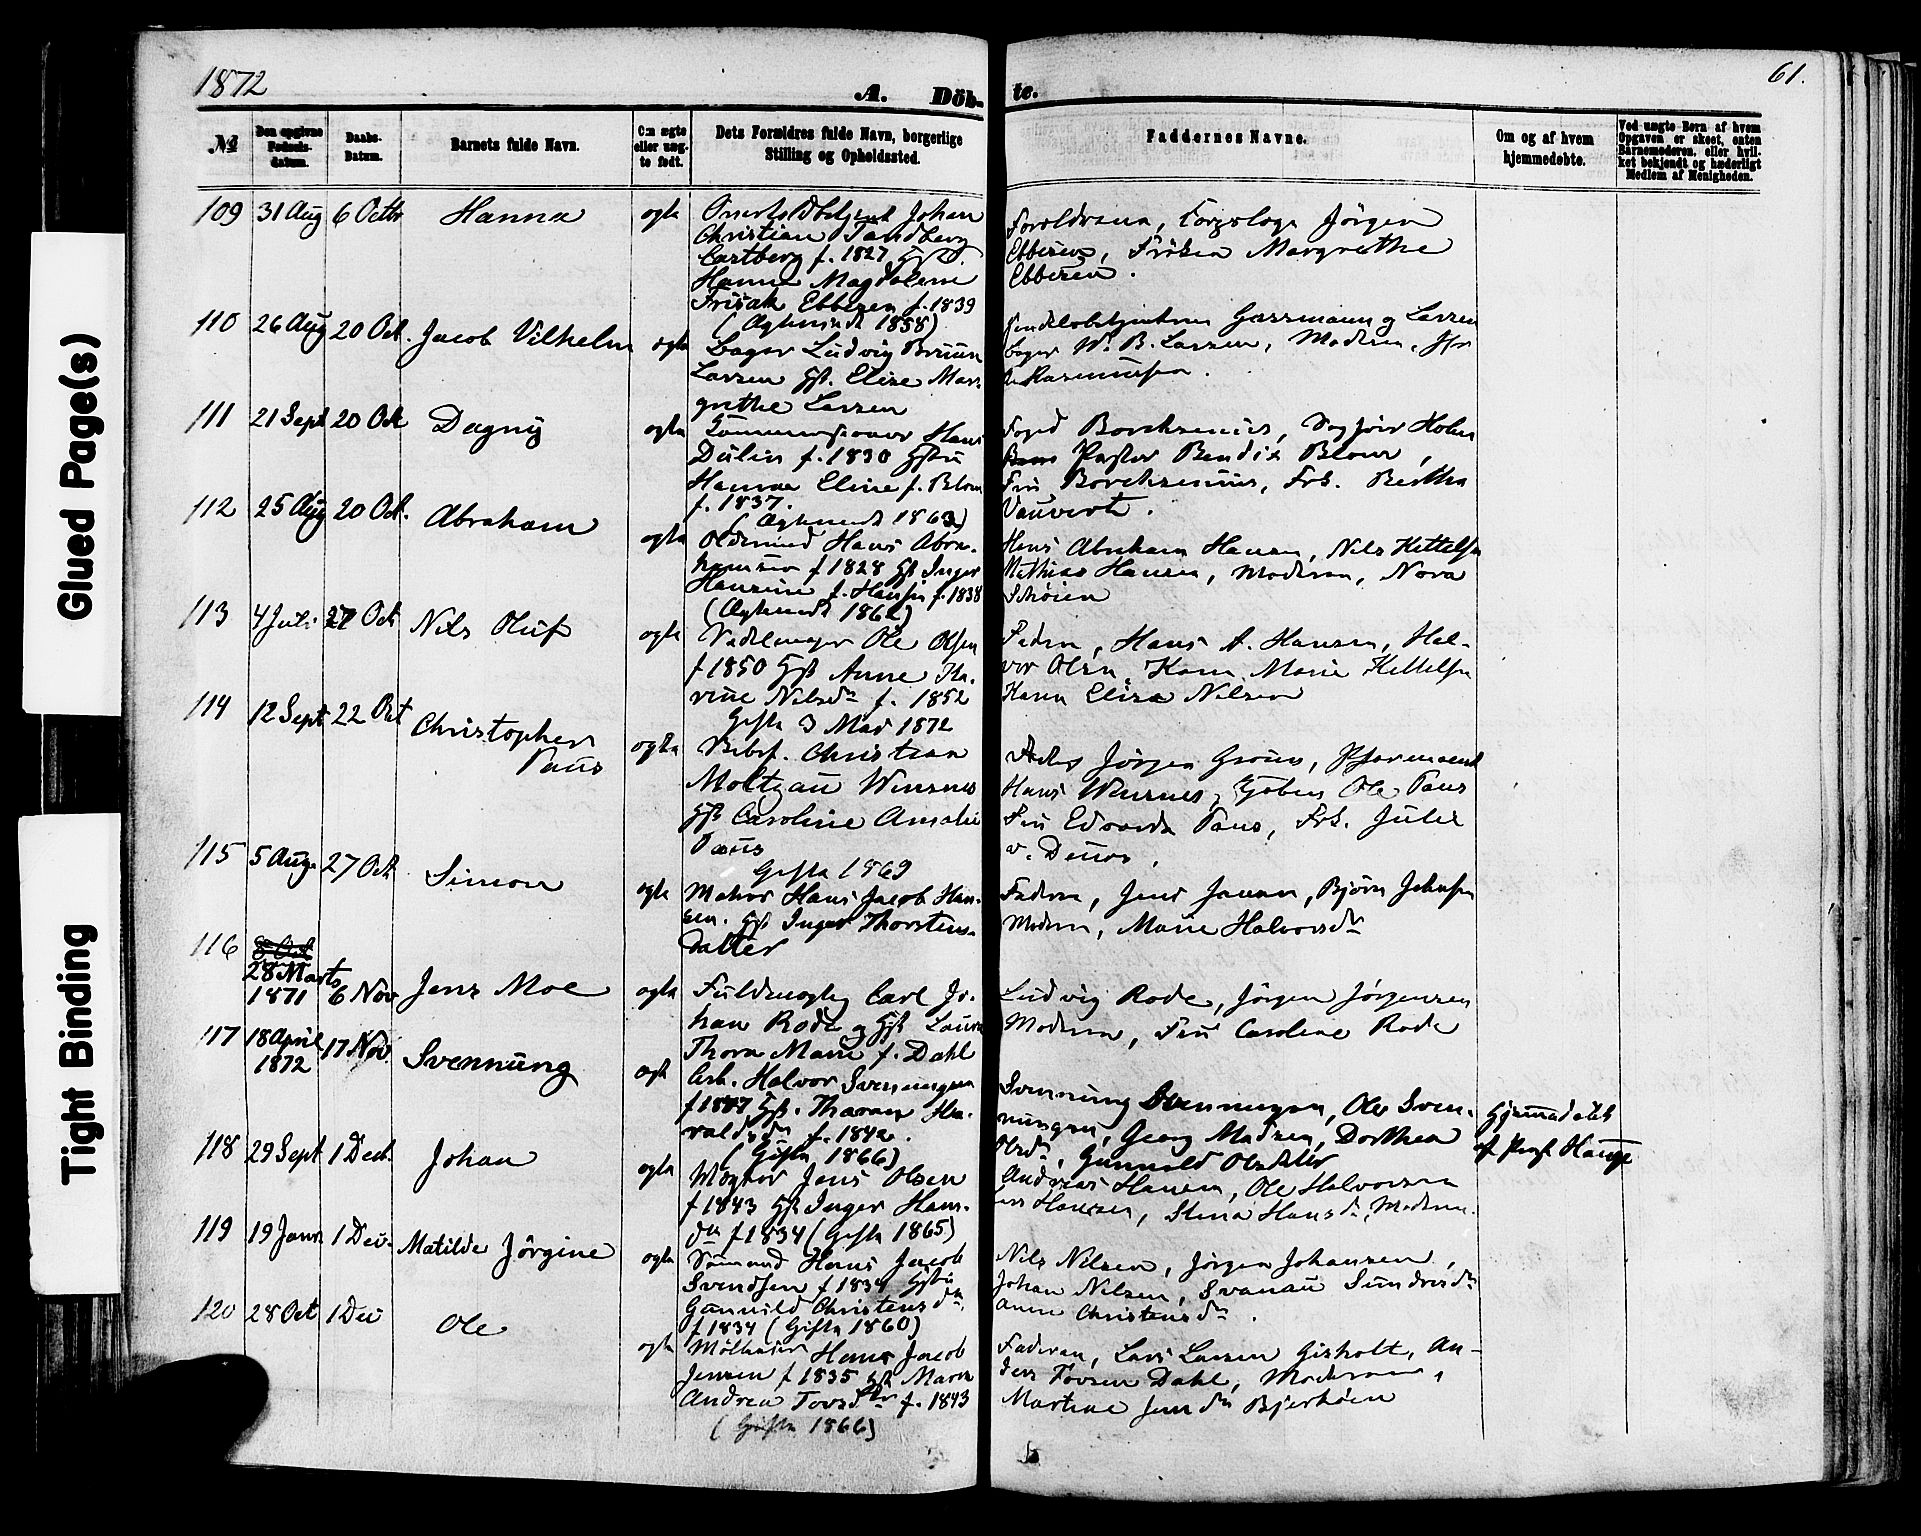 1872
A. Döb-
te.
61.
Glued Page(s)
Tight Binding
№
Den opgivne Fødsels-datum.
Daabs-Datum.
Barnets fulde Navn.
Om ægte eller uægte født.
Dets Forældres fulde Navn, borgerlige Stilling og Opholdssted.
Faddernes Navne.
Om og af hvem hjemmedøbte.
Ved uægte Børn af hvem Opgaven er skeet, enten Barnemoderen, eller hvilket bekjendt og hæderligt Medlem af Menigheden.
109 31 Aug 6 Octbr Hanna ogta
Johan
Christian Tandberg
Castberg f. 1827
Hanna Magdalene
Frisak Ebbesen f. 1839
(Ægteviede 1858)
Jørgen
Ebbesen, Frøken Margrethe
Ebbesen.
110 26 Aug 20 Oct. Jacob Vilhelm ogta
Bager Ludvig Bruun
Larsen Hst. Elise Mar-
grethe Larsen
og Larsen
Bager W. B. Larsen, Moderen,
Rasmussen.
111 21 Sept 20 Oct Dagny ogta
Hans
Dulin f. 1830 Hstru
Hanna Eline f. Blom
f. 1837.
(Ægteviede 1863)
Foged Borchsenius, Sagfører Holm
Pastor Bendix Blom,
Fru Borchsenius, Frk. Bertha
112 25 Aug 20 Oct. Abraham ogta
Hans Abra-
hamsen f 1828 Hst Inger
Hansine f. Hansen f. 1838
(Ægteviede 1862)
Hans Abraham Hansen, Nils Kittelsen
Mathias Hansen, Moderen, Nora
113 4 Juli 27 Oct Nils Oluf ogta
Ole Olsen
f 1850 Hst Anne Ka-
rine Nilsdr f. 1852
Gifta 3 Mai 1872
Faderen, Hans A. Hansen, Hal-
vor Olsen, Karen Marie Kittelsen
Karen Elise Nilsen
114 12 Sept 22 Oct Christopher
Paus ogta
Christian
Moltzau Wensnes
Hst Caroline Amalie
Paus
Gifta 1869
Jørgen
Hans Wensnes, Ole Paus
Fru Edvarda Paus, Frk. Julie
115 5 Aug. 27 Oct Simon ogta
Matros Hans Jacob Han-
sen. Hst Inger Thorstens-
datter
Faderen, Jens Jensen, Bjørn Johnsen
Moderen, Marie Halvorsdr
116 8 Oct
28 Marts
1871 6 Nov Jens Moe ogta
Fuldmægtig Carl Jo-
han Rode og Hst Laura
Thora Marie f. Dahl
Ludvig Rode, Jørgen Jørgensen
Moderen, Fru Caroline Rode
117 18 April
1872 17 Nov Svennung ogt
Arb. Halvor Svenningsen
f 1847 Hst. Tharan Ha-
raldsdr f. 1842.
(Gifta 1866)
Svennung Svenningsen, Ole Sven-
ningsen, Georg Madsen, Dorthea
Olsdr, Gunnild Olsdatter
Hjemmedøbt
af Prof. Hauge
118 29 Sept 1 Dec. Johan ogta
Jens Olsen
f 1843 Hst Inger Hans-
dr f 1834 (Gifta 1865)
Andreas Hansen, Ole Halvorsen
Lars Hansen, Stina Hansdr, Moderen.
119 19 Janr 1 Dec. Matilde Jørgine ogta
Sømand Hans Jacob
Svendsen f 1834 Hstru
Gunnild Christensdr
f 1834 (Gifta 1860)
Nils Nilsen, Jørgen Johansen,
Johan Nilsen,
Anne Christensdr.
120 28 Oct 1 Dec Ole ogta
Hans Jacob
Jensen f 1835 Hst Maren
Andrea Torsdtr f. 1843
(Gifta 1866)
Faderen, Lars Larsen Gisholt, An-
ders Tovsen Dahl, Moderen,
Martine Jensdr